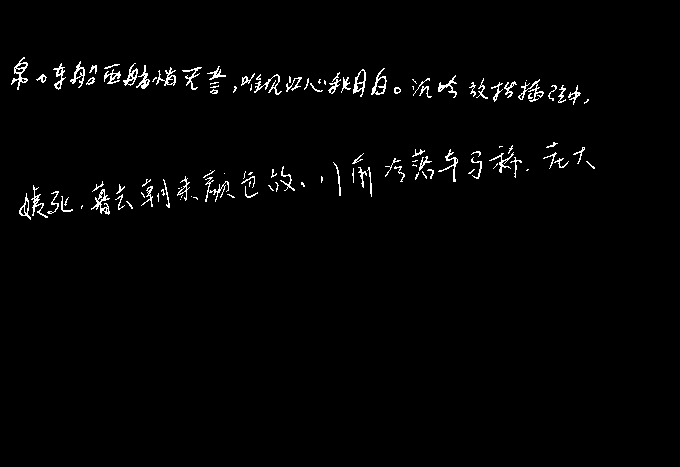 帛,东船西舫悄无言,唯见江心秋月白。沉吟放拨插弦中,
姨死,暮去朝来颜色故。门前冷落车马稀,老大